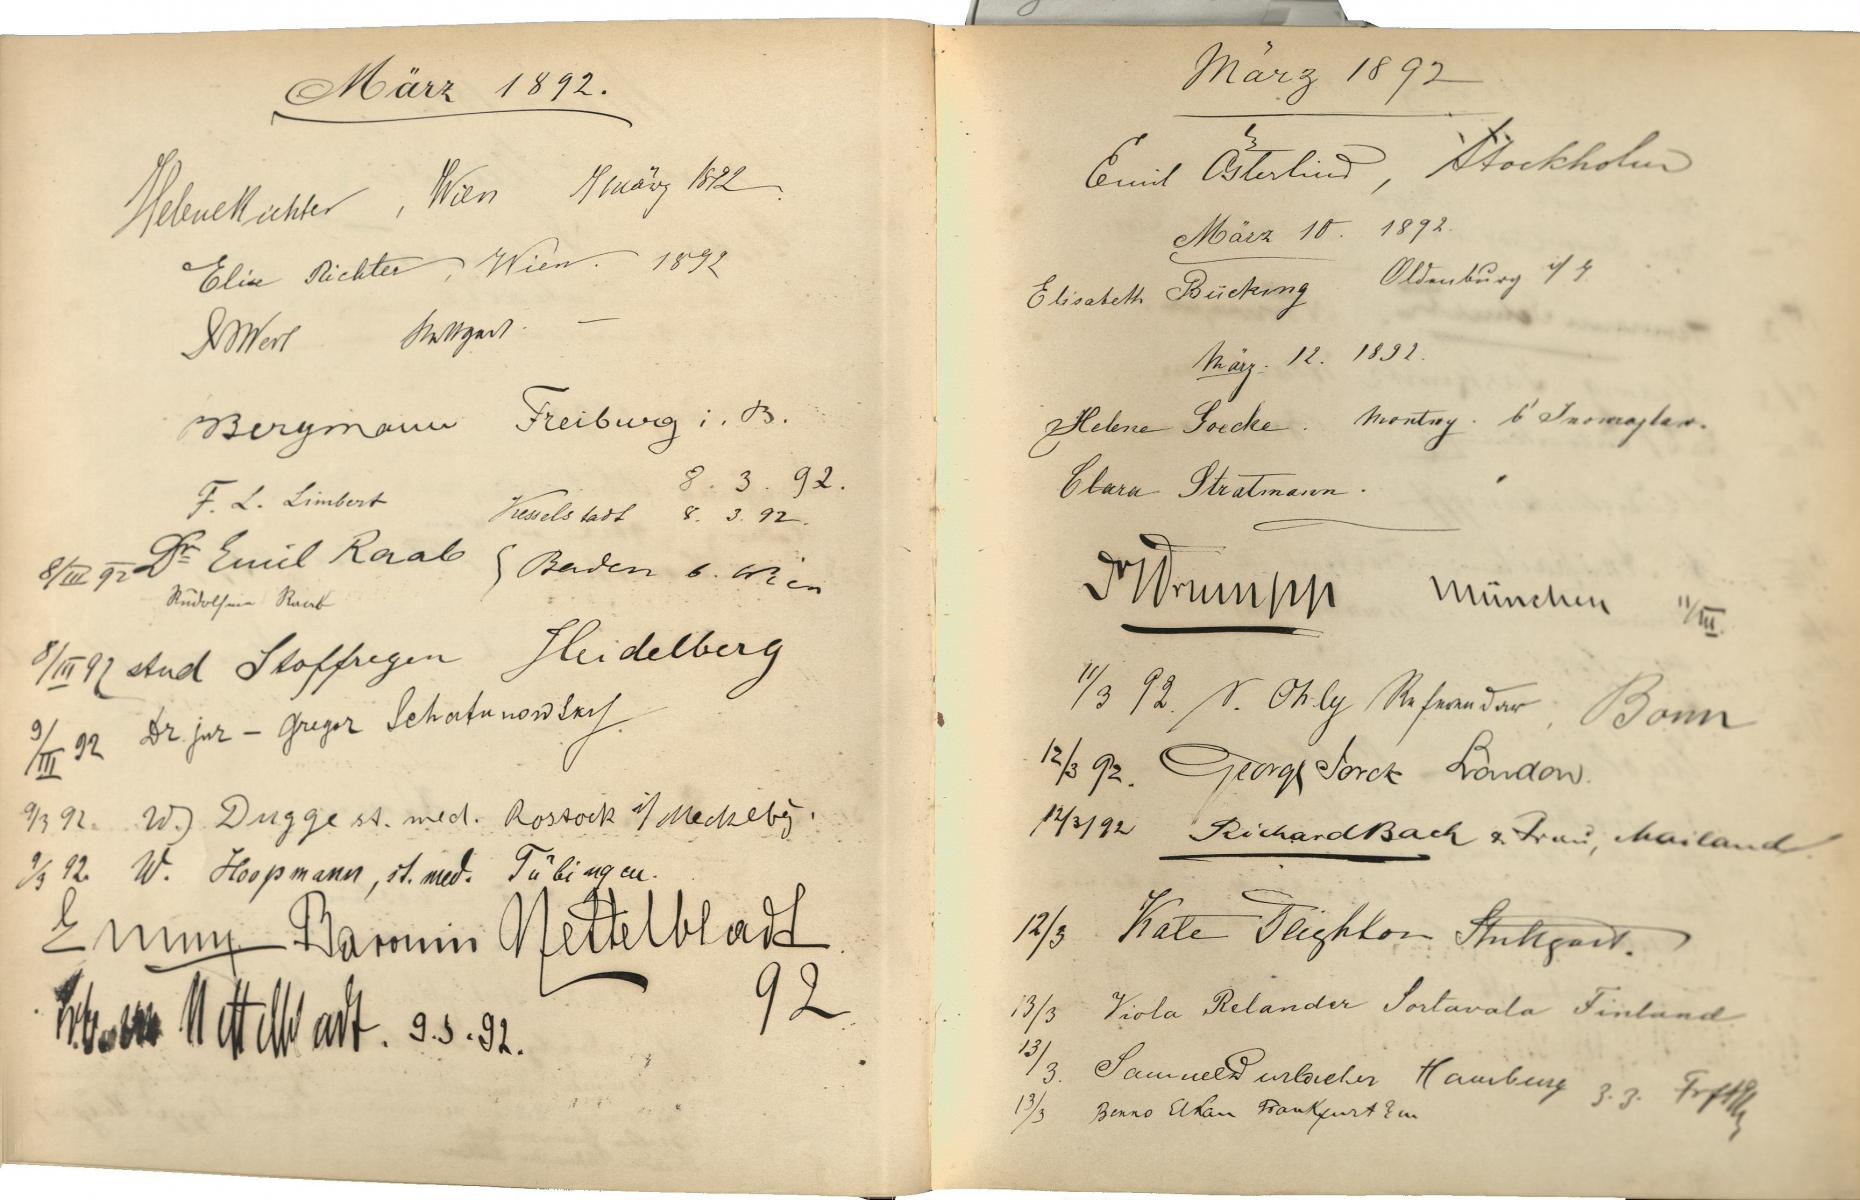 März 1892.
Helene Richter, Wien März 1892
Elise Richter, Wien. 1892
Stuttgart. —
Bergmann Freiburg i. B.
8. 3. 92.
F. L. Limbert Kesselstadt 8. 3. 92.
8/III 92 Dr Emil Raab { Baden b. Wien
Raab
8/III 92 stud Stoffregen Heidelberg
9/III 92 Dr. jur – Gregor Schatunowsky
9/3 92. W. Dugge st. med. Rostock i/Mecklbg.
9/3 92. W. Hoopmann, st. med. Tübingen.
Emmy Baronin Nettelbladt
92
Nettelbladt. 9.3.92.
März 1892
Emil Österlind, Stockholm
März 10. 1892.
Elisabeth Bücking Oldenburg i/
März. 12. 1892.
Helene Goecke. Montwy. b/
Clara Stratmann.
Dr Trumpp München 11/III.
11/3 92. Ohly Referendar, Bonn
12/3 92. Georg London.
12/3/92 Richard Bach & Frau, Mailand
12/3 Kate Stuttgart.
13/3 Viola Relander Sortavala Finland
13/3. Samuel Durlacher Hamburg z. Z.
13/3 Benno Elkan Frankfurt